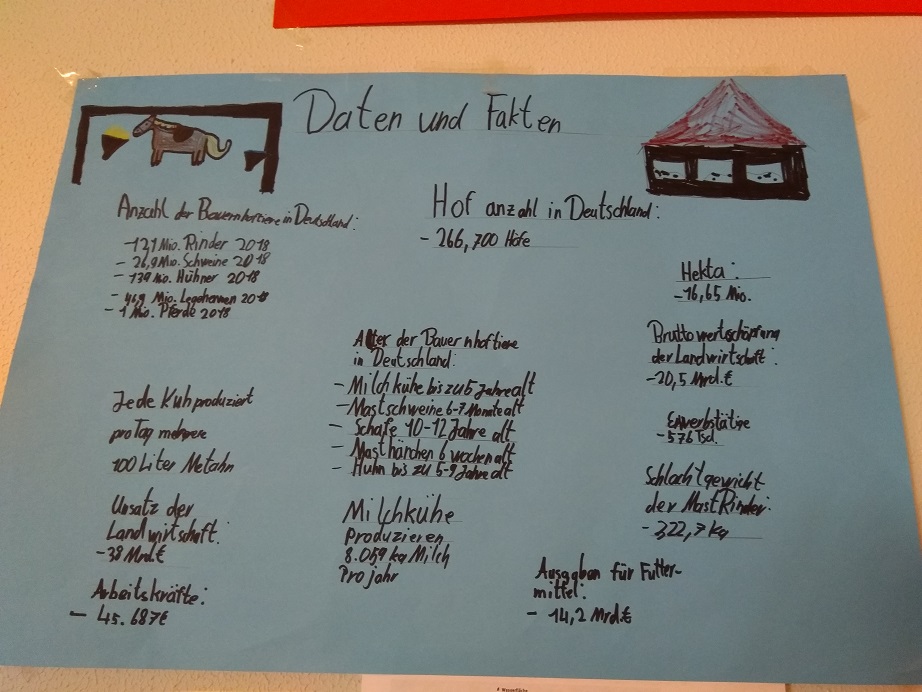 Daten und Fakten
Anzahl der Bauernhoftiere in Deutschland:
- 12,1 Mio. Rinder 2018
- 26,9 Mio. Schweine 2018
- 139 Mio. Hühner 2018
- 46,9 Mio. Legehennen 2018
- 1 Mio. Pferde 2018
Jede Kuh produziert
pro Tag mehrere
100 Liter Metahn
Umsatz der
Landwirtschaft:
- 38 Mrd.€
Arbeitskräfte:
- 45.687€
Hof anzahl in Deutschland:
- 266,700 Höfe
Alter der Bauernhoftiere
in Deutschland:
- Milchkühe bis zu 5 Jahre alt
- Mastschweine 6-7 Monate alt
- Schafe 10-12 Jahre alt
- Masthänchen 6 wochen alt
- Huhn bis zu 5-9 Jahre alt
Milchkühe
Produzieren
8.059 kg Milch
Pro jahr
Hekta:
- 16,65 Mio.
Bruttowertschöpfung
der Landwirtschaft:
- 20,5 Mrd.€
Erwerbstätige
- 576 Tsd.
Schlachtgewicht
der MastRinder:
- 322,7 kg
Ausgaben für Futter-
mittel:
- 14,2 Mrd.€